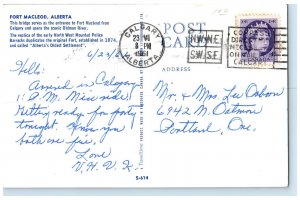 FORT MACLEOD, ALBERTA
This bridge serves as the entrance to Fort Macleod from
Calgary and spans the scenic Oldman River.
The replica of the early North West Mounted Police
Barracks duplicates the original Fort, established in 1874
and called "Alberta's Oldest Settlement".
POST CARD
CALGARY
PM
ALBERTA
6/23/
Hello.
Arrived in Calgary
1: A.M. Miss
Getting ready for party
tonight. Hope you
both are fine.
Love
V.H.V.K.
S-674
ADDRESS
Mr. & Mrs. Leo Osborn
6942 N. Oatman
Portland, Ore.